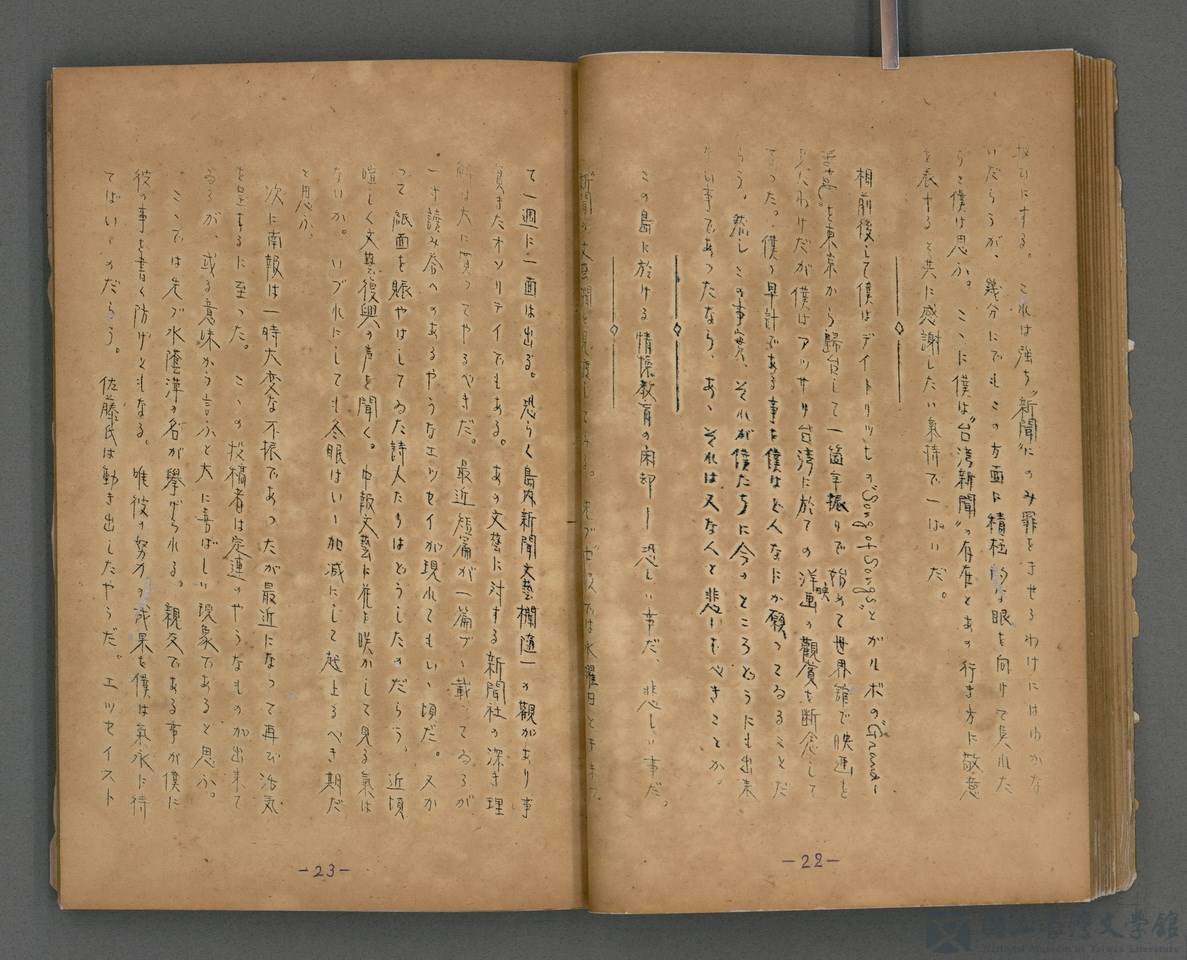 扱ひにする。これは強ち"新聞"にのみ罪をきせるわけにはゆかな
いだらうが、幾分にでもこの方面に積極的の眼を向けて呉れた
らと僕は思ふ。ここに僕は"台湾新聞"の存在とあの行き方に敬意
を表すると共に感謝したい氣持で一ぱいだ。
相前後して僕はデイトリッヒの"Song of Songs"とガルボの"Grand-
を東京から歸台して一箇年振りで始めて世界館で映画を
たわけだが僕はアッサリ台湾に於ての洋映画の觀賞を断念して
了った。僕の早計である事を僕はどんなにか願ってゐることだ
らう。然しこの事実、それが僕たちに今のところどうにも出来
ない事であったなら、あゝそれは又なんと悲しむべきことか。
この島に於ける情操教育の困却――恐しい事だ、悲しい事だ。
て一週に一面は出る。恐らく島内新聞文藝欄随一の觀があり事
実またオソリテイでもある。あの文藝に対する新聞社の深き理
解は大に買ってやるべきだ。最近短篇が一篇づゝ載ってゐるが
一寸讀み答へのあるやうなエッセイが現れてもいゝ頃だ。又か
って紙面を賑やはしてゐた詩人たちはどうしたのだらう、近頃
喧しく文藝復興の声を聞く。中報文藝に花を咲かして見る氣は
ないか。いづれにしても冬眠はいゝ加減にして起上るべき期だ
と思ふ。
次に南報は一時大変な不振であったが最近になって再び活気
を呈するに至った。この投稿者は定連のやうなものが出来て
ゐるが、或る意味から言ふと大に喜ばしい現象であると思ふ。
こゝでは先づ水蔭萍の名が擧げられる。親交である事が僕に
彼の事を書く防げともなる。唯彼の努力の成果を僕は氣永に待
てばいゝのだらう。佐藤氏は動き出したやうだ。エッセイスト
-22-
-23-
國立臺灣文學館
National Museum of Taiwan Literature